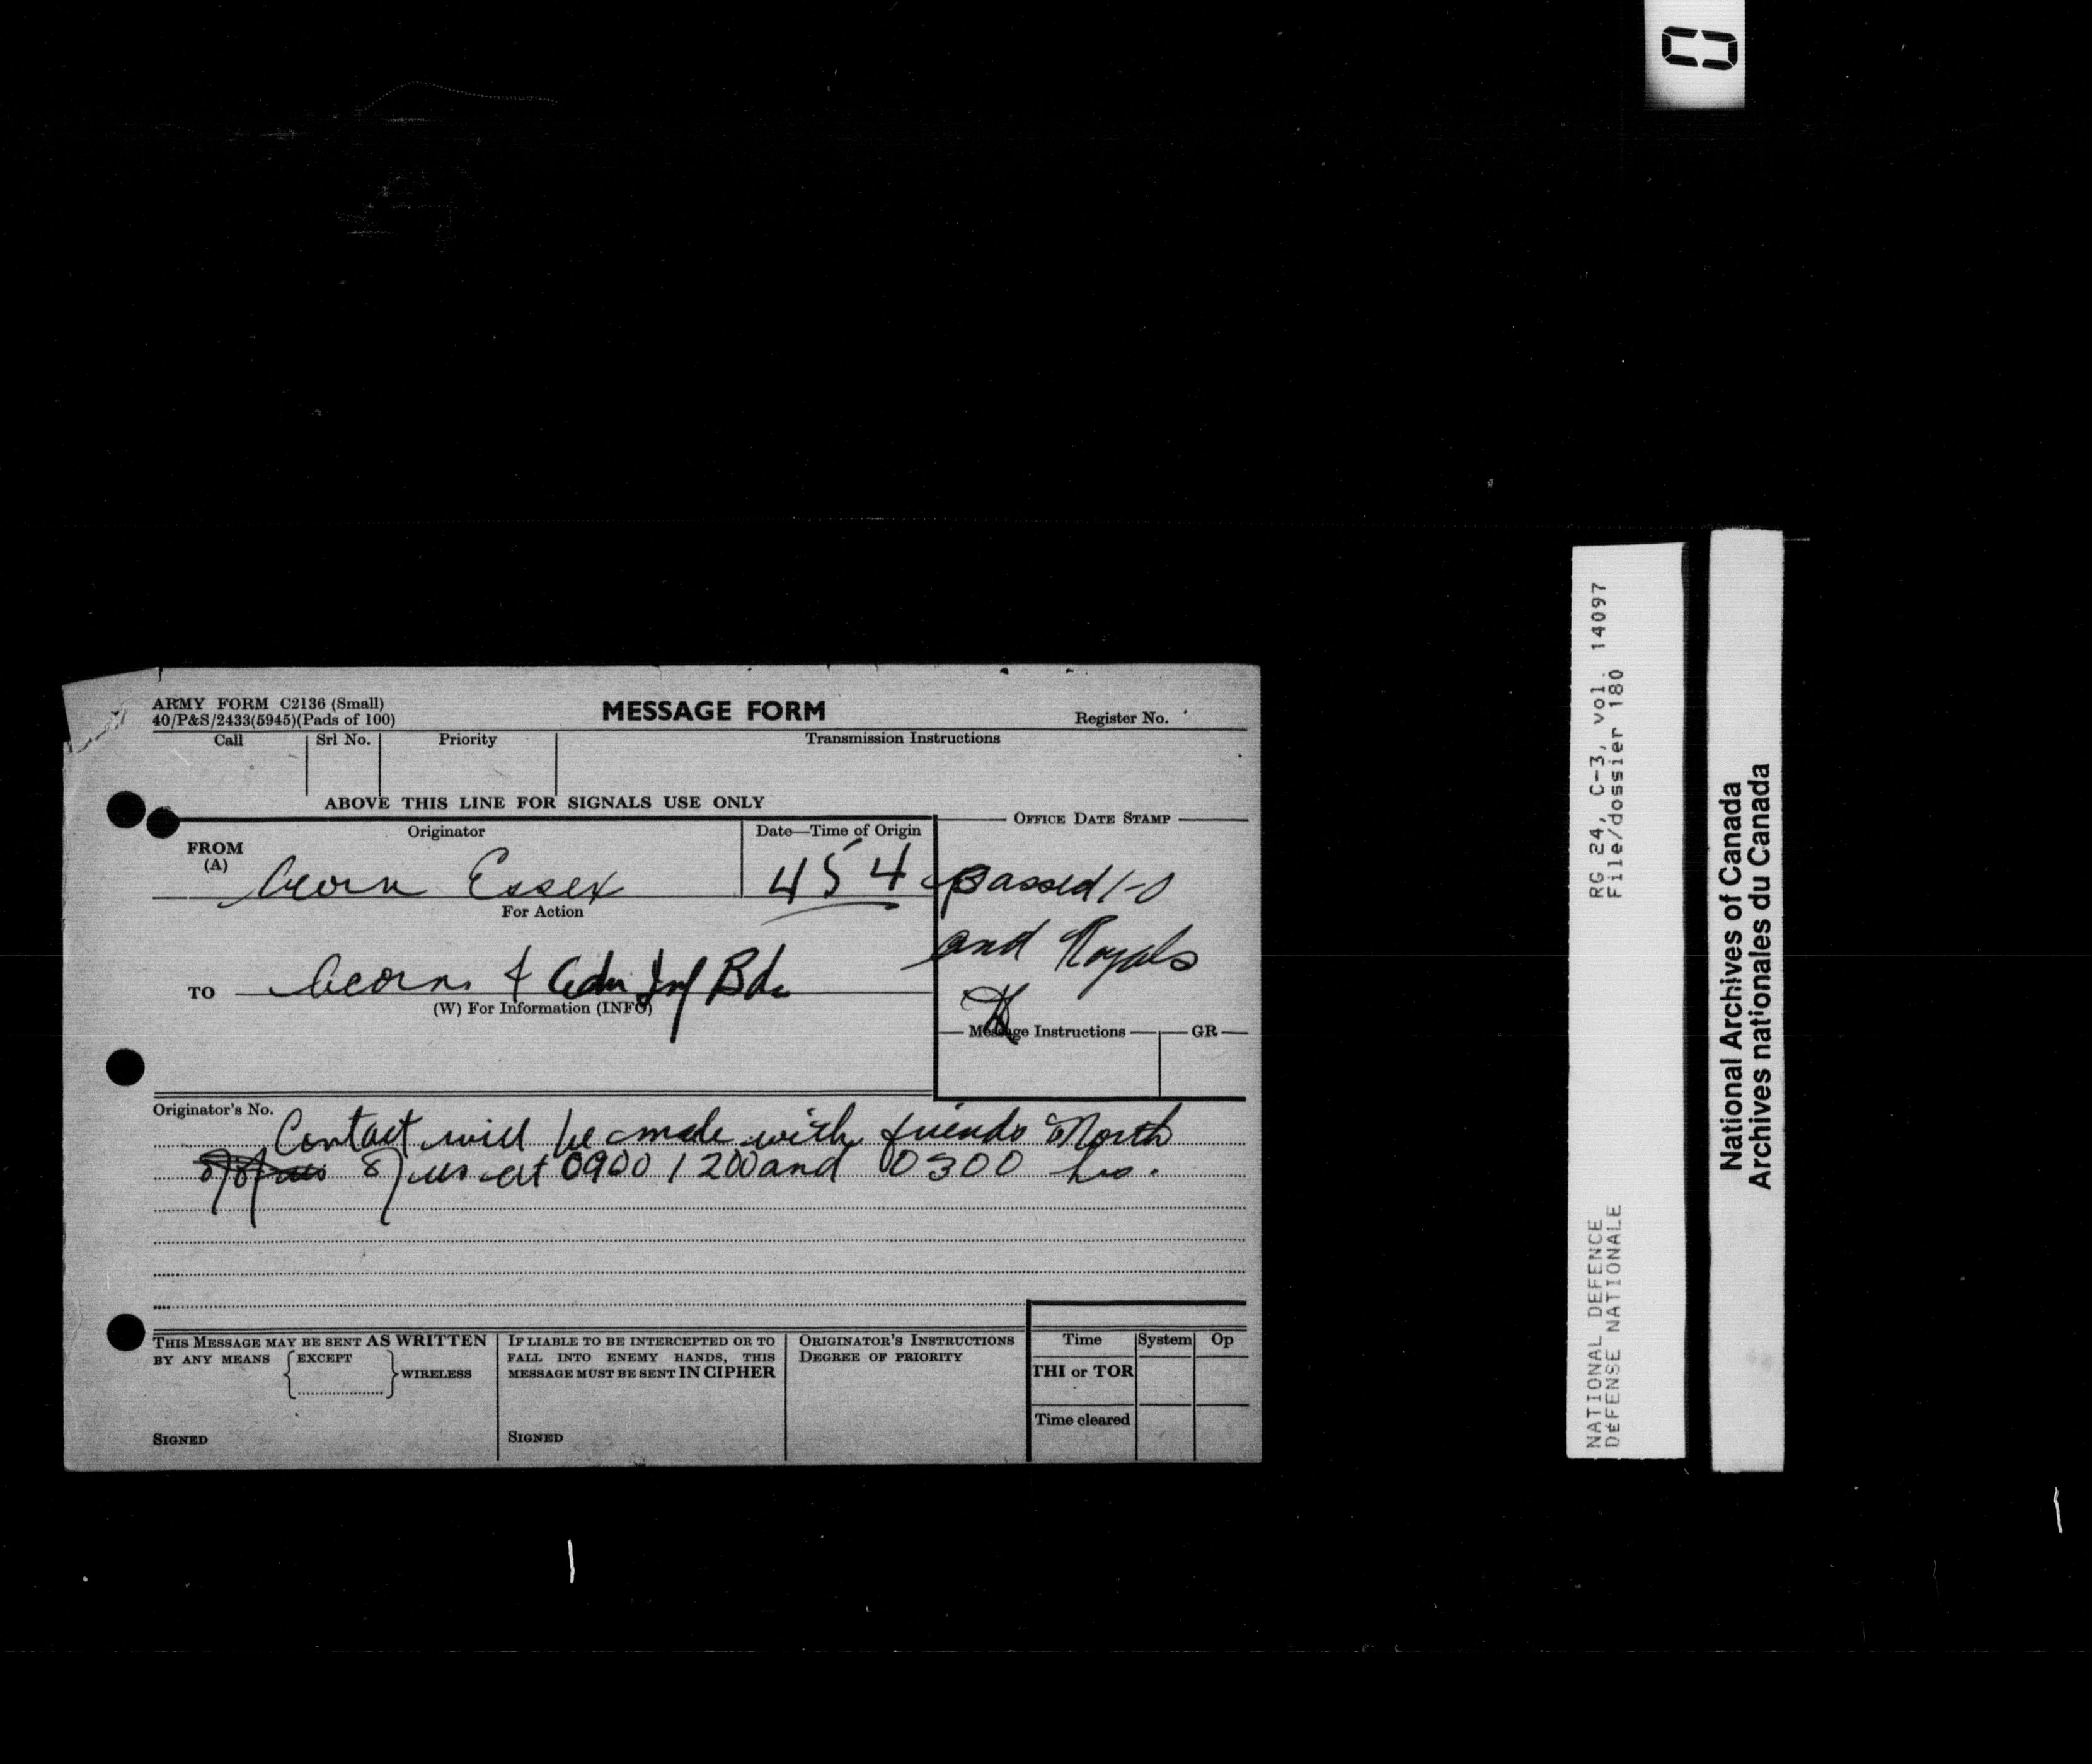 ARMY FORM C2136 (Small)
40/P&S/2433(5945)(Pads of 100)
MESSAGE FORM
Register No.
Call
Srl No.
Priority
Transmission Instructions
ABOVE THIS LINE FOR SIGNALS USE ONLY
FROM
(A)
Originator
Acorn Essex
Date—Time of Origin
454
OFFICE DATE STAMP
passed
and Royals
For Action
TO Acorn 4 Cdn Inf Bde
(W) For Information (INFO)
Message Instructions
GR
Originator's No.
Contact will be made with friends North
of us at 0900 1200 and 0300 hrs.
THIS MESSAGE MAY BE SENT AS WRITTEN
BY ANY MEANS
EXCEPT
WIRELESS
SIGNED
IF LIABLE TO BE INTERCEPTED OR TO
FALL INTO ENEMY HANDS, THIS
MESSAGE MUST BE SENT IN CIPHER
SIGNED
ORIGINATOR'S INSTRUCTIONS
DEGREE OF PRIORITY
Time
System
Op
THI or TOR
Time cleared
RG 24, C-3, vol. 14097
File/dossier 180
NATIONAL DEFENCE
DéFENSE NATIONALE
National Archives of Canada
Archives nationales du Canada